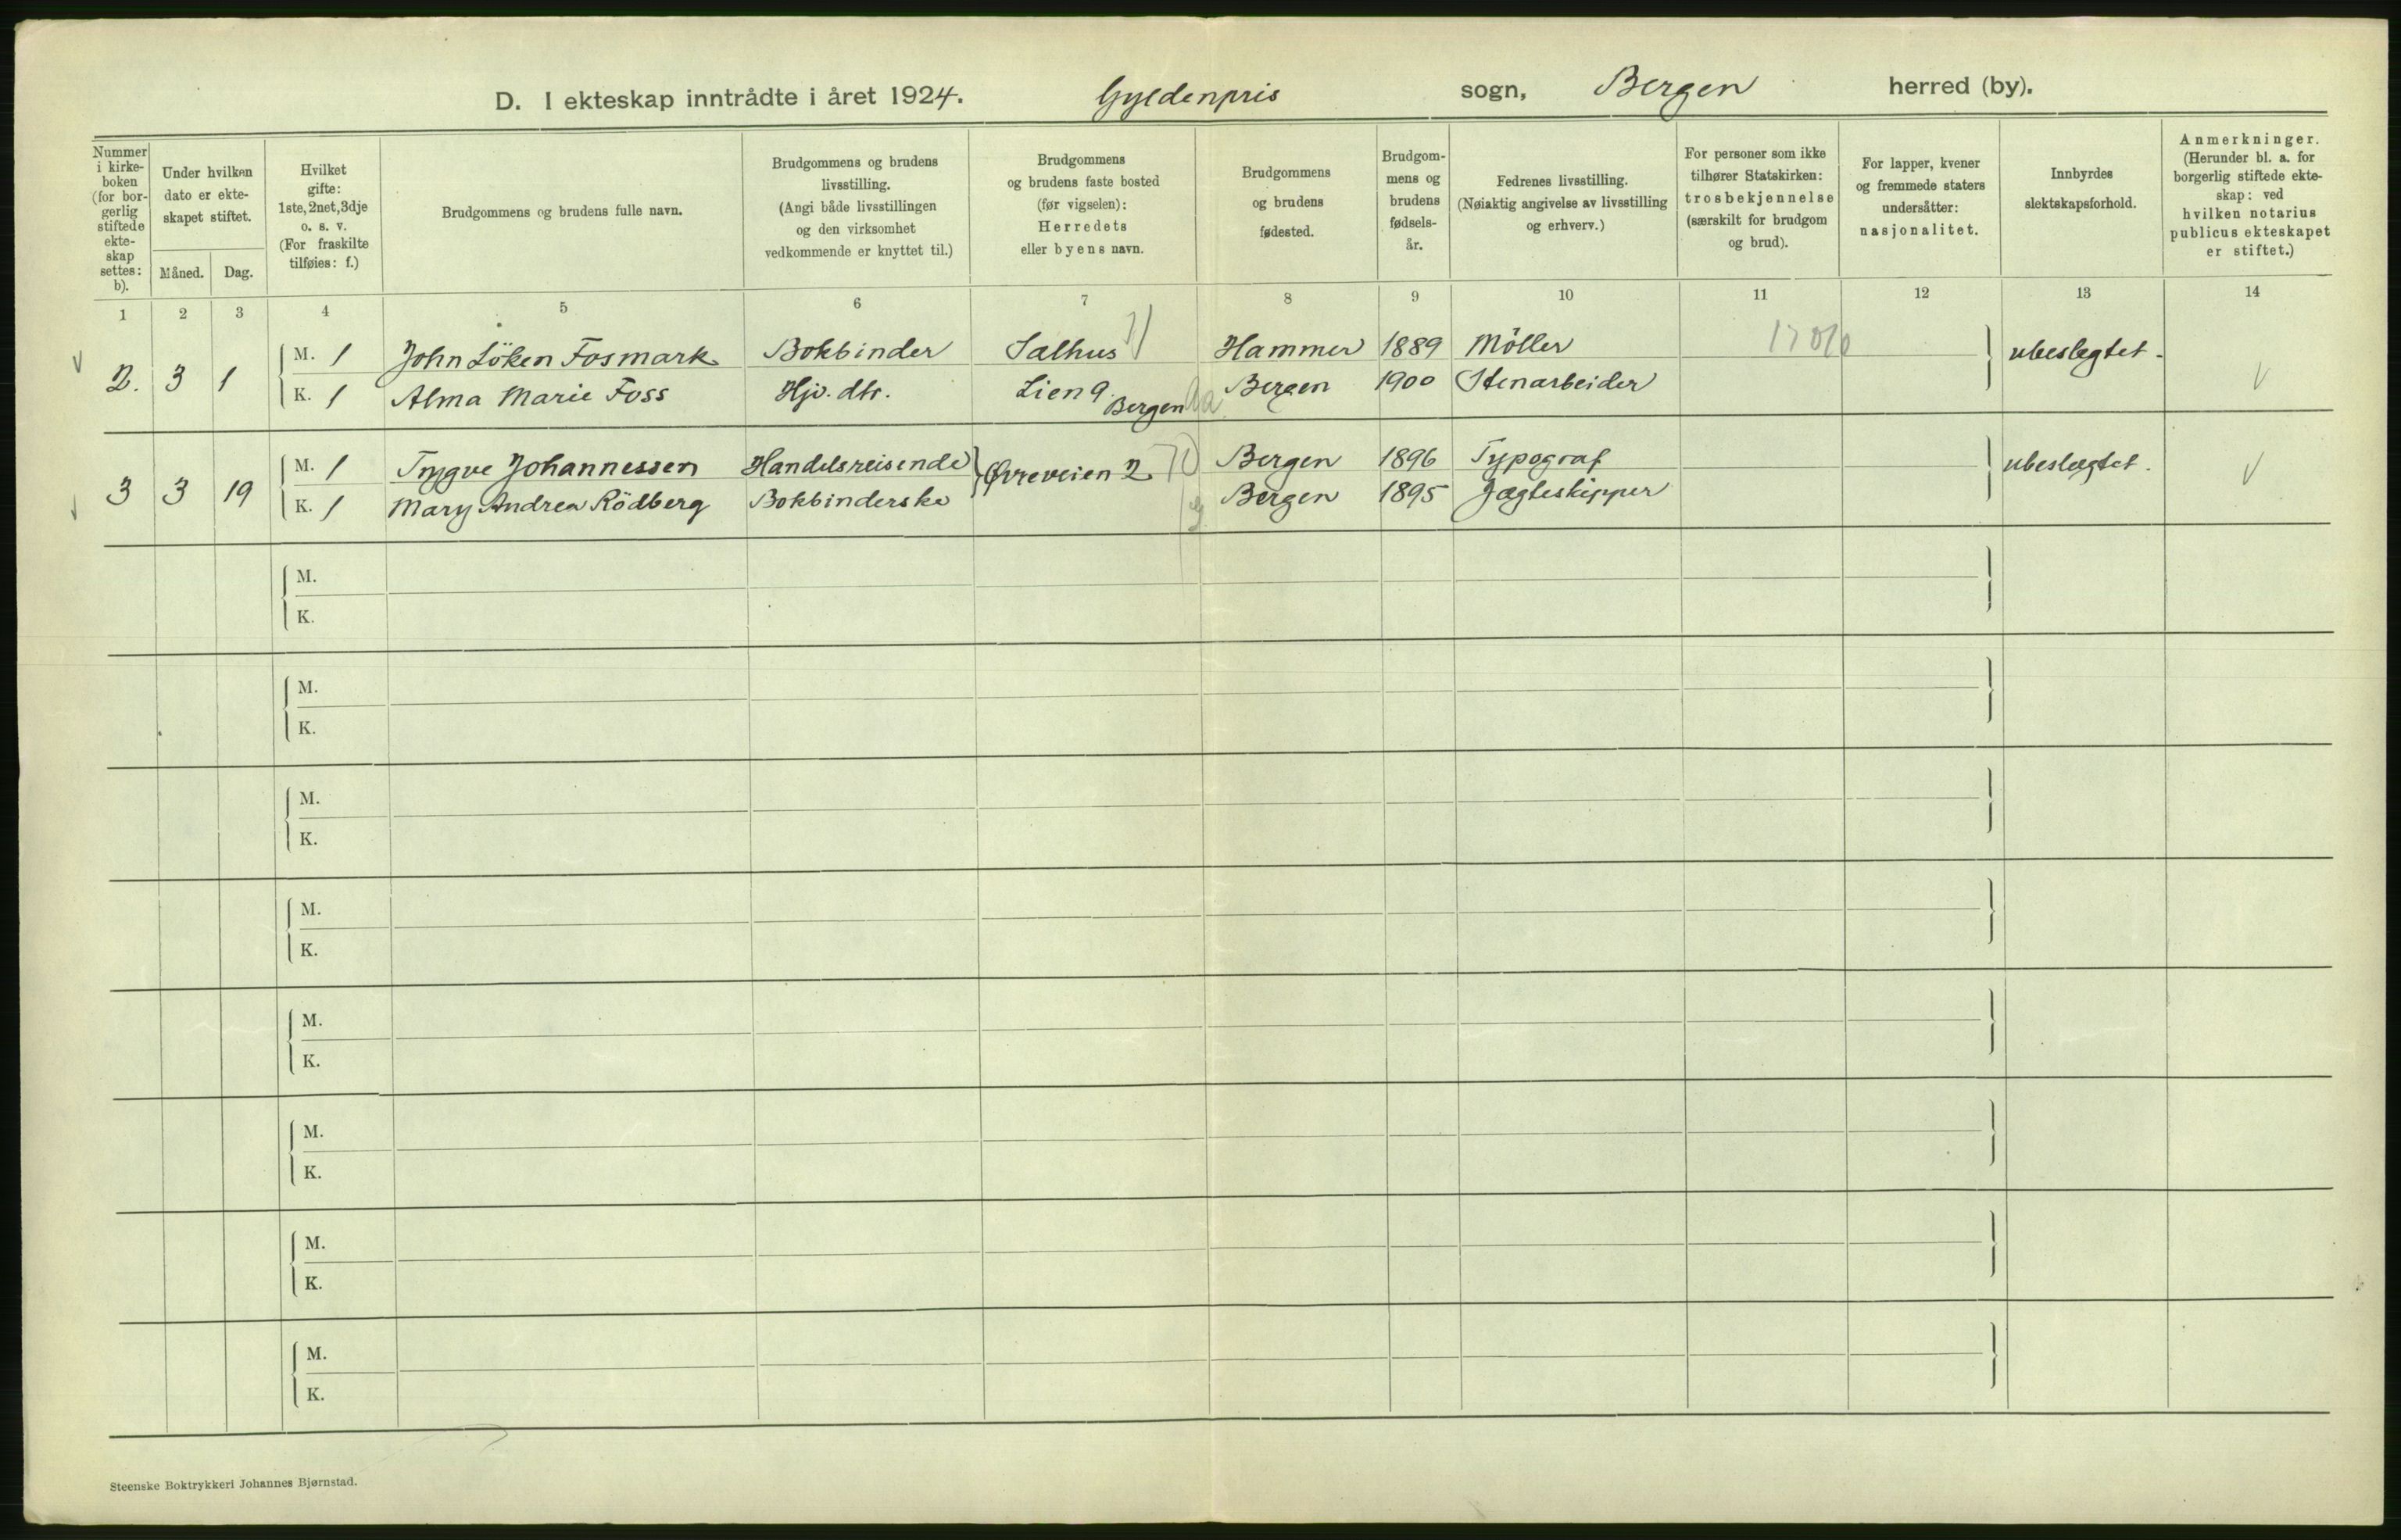 D. I ekteskap inntrådte i året 1924. Gyldenpris sogn, Bergen herred (by).
Nummer i kirkeboken (for borgerlig stiftede ekteskap settes: b).
Under hvilken dato er ekteskapet stiftet.
Måned. Dag.
Hvilket gifte: 1ste, 2net, 3dje o. s. v. (For fraskilte tilføies: f.)
Brudgommens og brudens fulle navn.
Brudgommens og brudens livsstilling. (Angi både livsstillingen og den virksomhet vedkommende er knyttet til.)
Brudgommens og brudens faste bosted (før vigselen): Herredets eller byens navn.
Brudgommens og brudens fødested.
Brudgommens og brudens fødselsår.
Fedrenes livsstilling. (Nøiaktig angivelse av livsstilling og erhverv.)
For personer som ikke tilhører Statskirken: trosbekjennelse (særskilt for brudgom og brud).
For lapper, kvener og fremmede staters undersåtter: nasjonalitet.
Innbyrdes slektskapsforhold.
Anmerkninger. (Herunder bl. a. for borgerlig stiftede ekteskap: ved hvilken notarius publicus ekteskapet er stiftet.)
1 2 3 4 5 6 7 8 9 10 11 12 13 14
2. 3 1 M. 1 John Löken Fosmark Bokbinder Salhus Hammer 1889 Möller ubeslegtet.
K. 1 Alma Marie Foss Hjv. dtr. Lien 9. Bergen Bergen 1900 Stenarbeider
3 3 19 M. 1 Trygve Johannessen Handelsreisende } Øvreveien 2 Bergen 1896 Typograf ubeslegtet.
K. 1 Mary Andrea Rödberg Bokbinderske Bergen 1895 Jægteskipper
M.
K.
M.
K.
M.
K.
M.
K.
M.
K.
M.
K.
M.
K.
M.
K.
Steenske Boktrykkeri Johannes Bjørnstad.